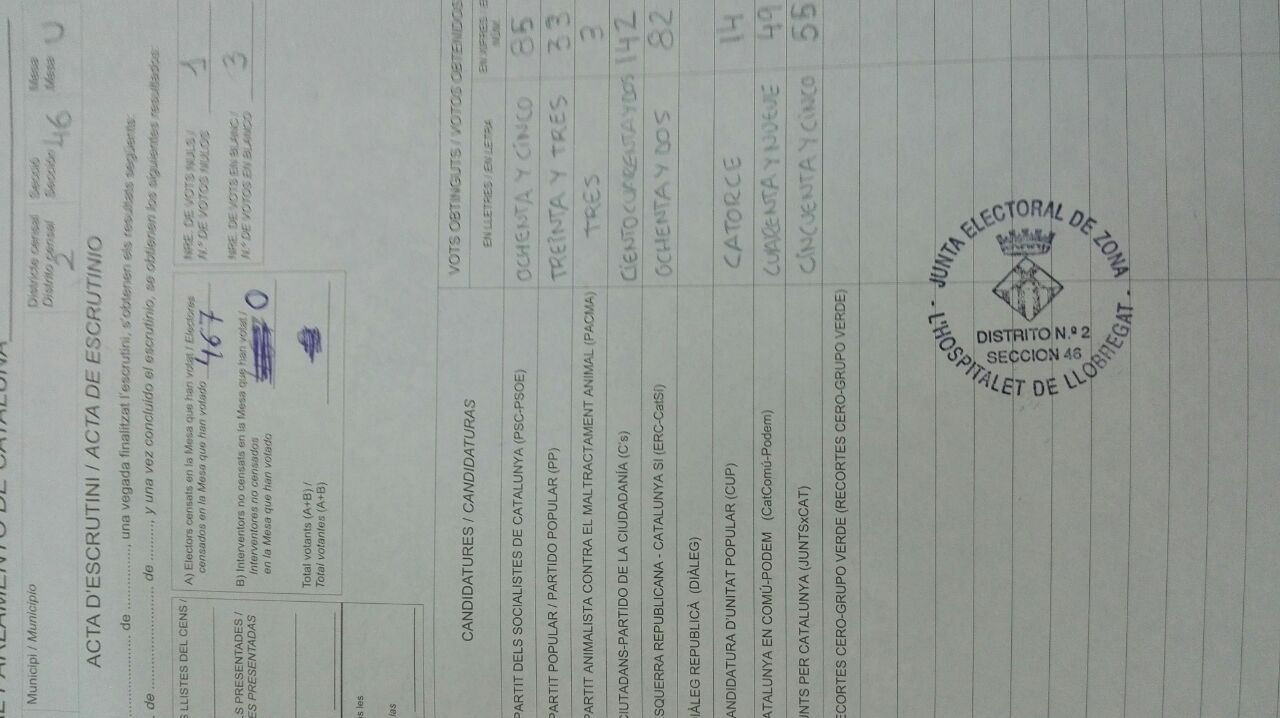 PARLAMENTO DE CATALUÑA
Municipi / Municipio
Districte censal
Distrito censal
2
Secció
Sección 46
Mesa
Mesa U
ACTA D'ESCRUTINI / ACTA DE ESCRUTINIO
de ..............., una vegada finalitzat l'escrutini, s'obtenen els resultats següents:
de ............... de .........., y una vez concluido el escrutinio, se obtienen los siguientes resultados:
LLISTES DEL CENS /
PRESENTADES /
PRESENTADAS
A) Electors censats en la Mesa que han votat / Electores
censados en la Mesa que han votado 467
B) Interventors no censats en la Mesa que han votat /
Interventores no censados
en la Mesa que han votado 0
Total votants (A+B) /
Total votantes (A+B)
NRE. DE VOTS NULS /
N.º DE VOTOS NULOS 1
NRE. DE VOTS EN BLANC /
N.º DE VOTOS EN BLANCO 3
CANDIDATURES / CANDIDATURAS
VOTS OBTINGUTS / VOTOS OBTENIDOS
EN LLETRES / EN LETRA
EN XIFRES / EN
NÚM.
PARTIT DELS SOCIALISTES DE CATALUNYA (PSC-PSOE) OCHENTA Y CINCO 85
PARTIT POPULAR / PARTIDO POPULAR (PP) TREINTA Y TRES 33
PARTIT ANIMALISTA CONTRA EL MALTRACTAMENT ANIMAL (PACMA) TRES 3
CIUTADANS-PARTIDO DE LA CIUDADANÍA (C's) CIENTO CUARENTA Y DOS 142
SQUERRA REPUBLICANA - CATALUNYA SÍ (ERC-CatSí) OCHENTA Y DOS 82
IÀLEG REPUBLICÀ (DIÀLEG)
ANDIDATURA D'UNITAT POPULAR (CUP) CATORCE 14
ATALUNYA EN COMÚ-PODEM (CatComú-Podem) CUARENTA Y NUEVE 49
UNTS PER CATALUNYA (JUNTSxCAT) CINCUENTA Y CINCO 55
ECORTES CERO-GRUPO VERDE (RECORTES CERO-GRUPO VERDE)
JUNTA ELECTORAL DE ZONA
DISTRITO N.º 2
SECCION 46
L'HOSPITALET DE LLOBREGAT